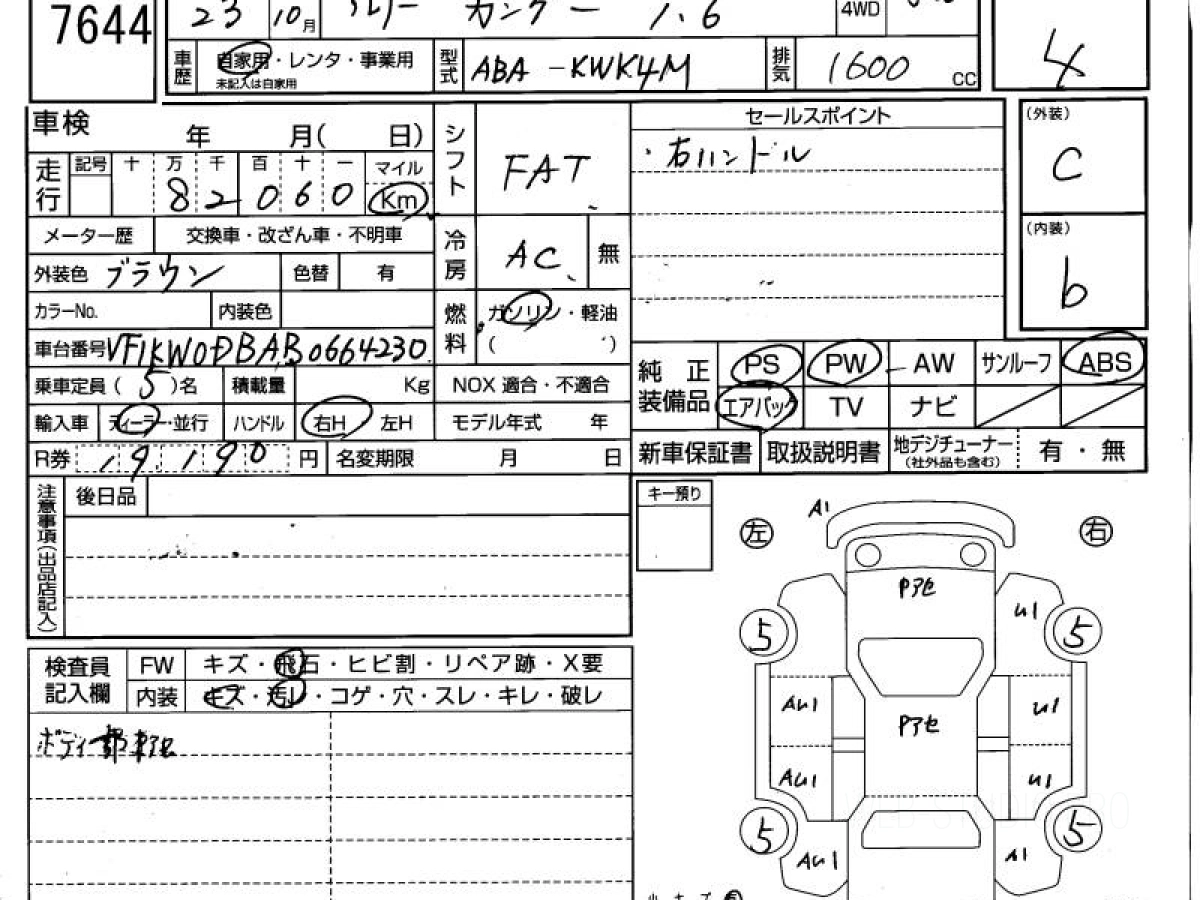 7644
23 10月 カングー 1.6 4WD
車歴 自家用・レンタ・事業用 型式 ABA-KWK4M 排気 1600 CC 4
未記入は自家用
車検 年 月( 日) シフト FAT セールスポイント (外装) C
・右ハンドル
走行 記号 十 万 千 百 十 一 マイル
82060 Km
メーター歴 交換車・改ざん車・不明車 冷房 AC 無 (内装) b
外装色 ブラウン 色替 有
カラーNo. 内装色 燃料 ガソリン・軽油
( )
車台番号 VF1KW0DBAB0664230
純正装備品 PS PW AW サンルーフ ABS
乗車定員(5)名 積載量 Kg NOX 適合・不適合
エアバック TV ナビ
輸入車 ディーラー・並行 ハンドル 右H 左H モデル年式 年
R券 19,190 円 名変期限 月 日
新車保証書 取扱説明書 地デジチューナー 有・無
(社外品も含む)
注意事項(出品店記入) 後日品
キー預り
左 右
A1
Pアセ
U1
5 5
AU1 U1
Pアセ
AU1 U1
5 5
AU1 A1
検査員記入欄 FW キズ・飛石・ヒビ割・リペア跡・X要
内装 キズ・汚レ・コゲ・穴・スレ・キレ・破レ